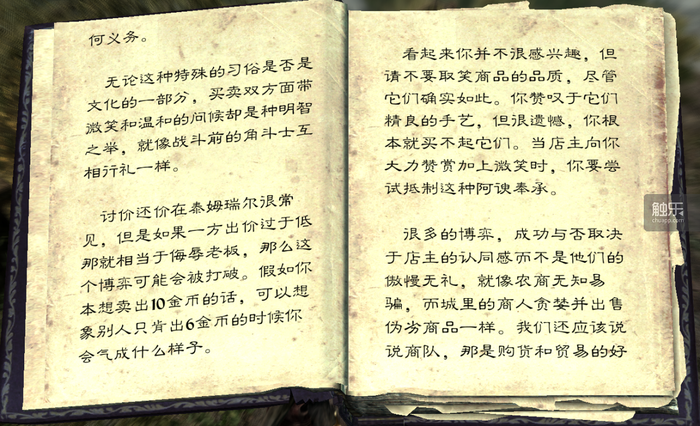 何义务。
无论这种特殊的习俗是否是
文化的一部分，买卖双方面带
微笑和温和的问候却是种明智
之举，就像战斗前的角斗士互
相行礼一样。
讨价还价在泰姆瑞尔很常
见，但是如果一方出价过于低
那就相当于侮辱老板，那么这
个博弈可能会被打破。假如你
本想卖出10金币的话，可以想
象别人只肯出6金币的时候你
会气成什么样子。
看起来你并不很感兴趣，但
请不要取笑商品的品质，尽管
它们确实如此。你赞叹于它们
精良的手艺，但很遗憾，你根
本就买不起它们。当店主向你
大力赞赏加上微笑时，你要尝
试抵制这种阿谀奉承。
很多的博弈，成功与否取决
于店主的认同感而不是他们的
傲慢无礼，就像农商无知易
骗，而城里的商人贪婪并出售
伪劣商品一样。我们还应该说
说商队，那是购货和贸易的好
触乐
chuapp.com